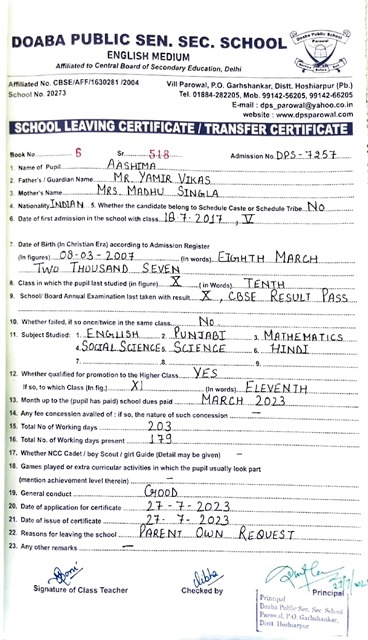 DOABA PUBLIC SEN. SEC. SCHOOL
ENGLISH MEDIUM
Affiliated to Central Board of Secondary Education, Delhi
Doaba Public School
Parowal
Affiliated No. CBSE/AFF/1630281 /2004
School No. 20273
Vill Parowal, P.O. Garhshankar, Distt. Hoshiarpur (Pb.)
Tel. 01884-282205, Mob. 99142-56205, 99142-66205
E-mail : dps_parowal@yahoo.co.in
website : www.dpsparowal.com
SCHOOL LEAVING CERTIFICATE / TRANSFER CERTIFICATE
Book No 6 Sr. 518 Admission No. DPS-7257
1 Name of Pupil AASHIMA
2 Father's / Guardian Name MR. YAMIR VIKAS
3 Mother's Name MRS. MADHU SINGLA
4. Nationality INDIAN 5. Whether the candidate belong to Schedule Caste or Schedule Tribe No
6. Date of first admission in the school with class 18-7-2017, V
7. Date of Birth (In Christian Era) according to Admission Register
(In figures) 08-03-2007 (in words) EIGHTH MARCH
TWO THOUSAND SEVEN
8. Class in which the pupil last studied (in figure) X ( in Words) TENTH
9. School/ Board Annual Examination last taken with result X, CBSE RESULT PASS
10. Whether failed, if so once/twice in the same class. No.
11. Subject Studied: 1. ENGLISH 2. PUNJABI 3. MATHEMATICS
4. SOCIAL SCIENCE 5. SCIENCE 6. HINDI
7. 8. 9.
12. Whether qualified for promotion to the Higher Class YES
If so, to which Class (In fig.) XI (In words) ELEVENTH
13. Month up to the (pupil has paid) school dues paid MARCH 2023
14. Any fee concession availed of : if so, the nature of such concession —
15. Total No of Working days 203
16. Total No. of Working days present 179
17. Whether NCC Cadet / boy Scout / girl Guide (Detail may be given) -
18. Games played or extra curricular activities in which the pupil usually look part
(mention achievement level therein) —
19. General conduct GOOD
20. Date of application for certificate 27-7-2023
21. Date of issue of certificate 27-7-2023
22. Reasons for leaving the school PARENT OWN REQUEST
23. Any other remarks —
Signature of Class Teacher
Checked by
Principal
Principal
Doaba Public Sen. Sec. School
Parowal, P.O. Garhshankar
Distt. Hoshiarpur